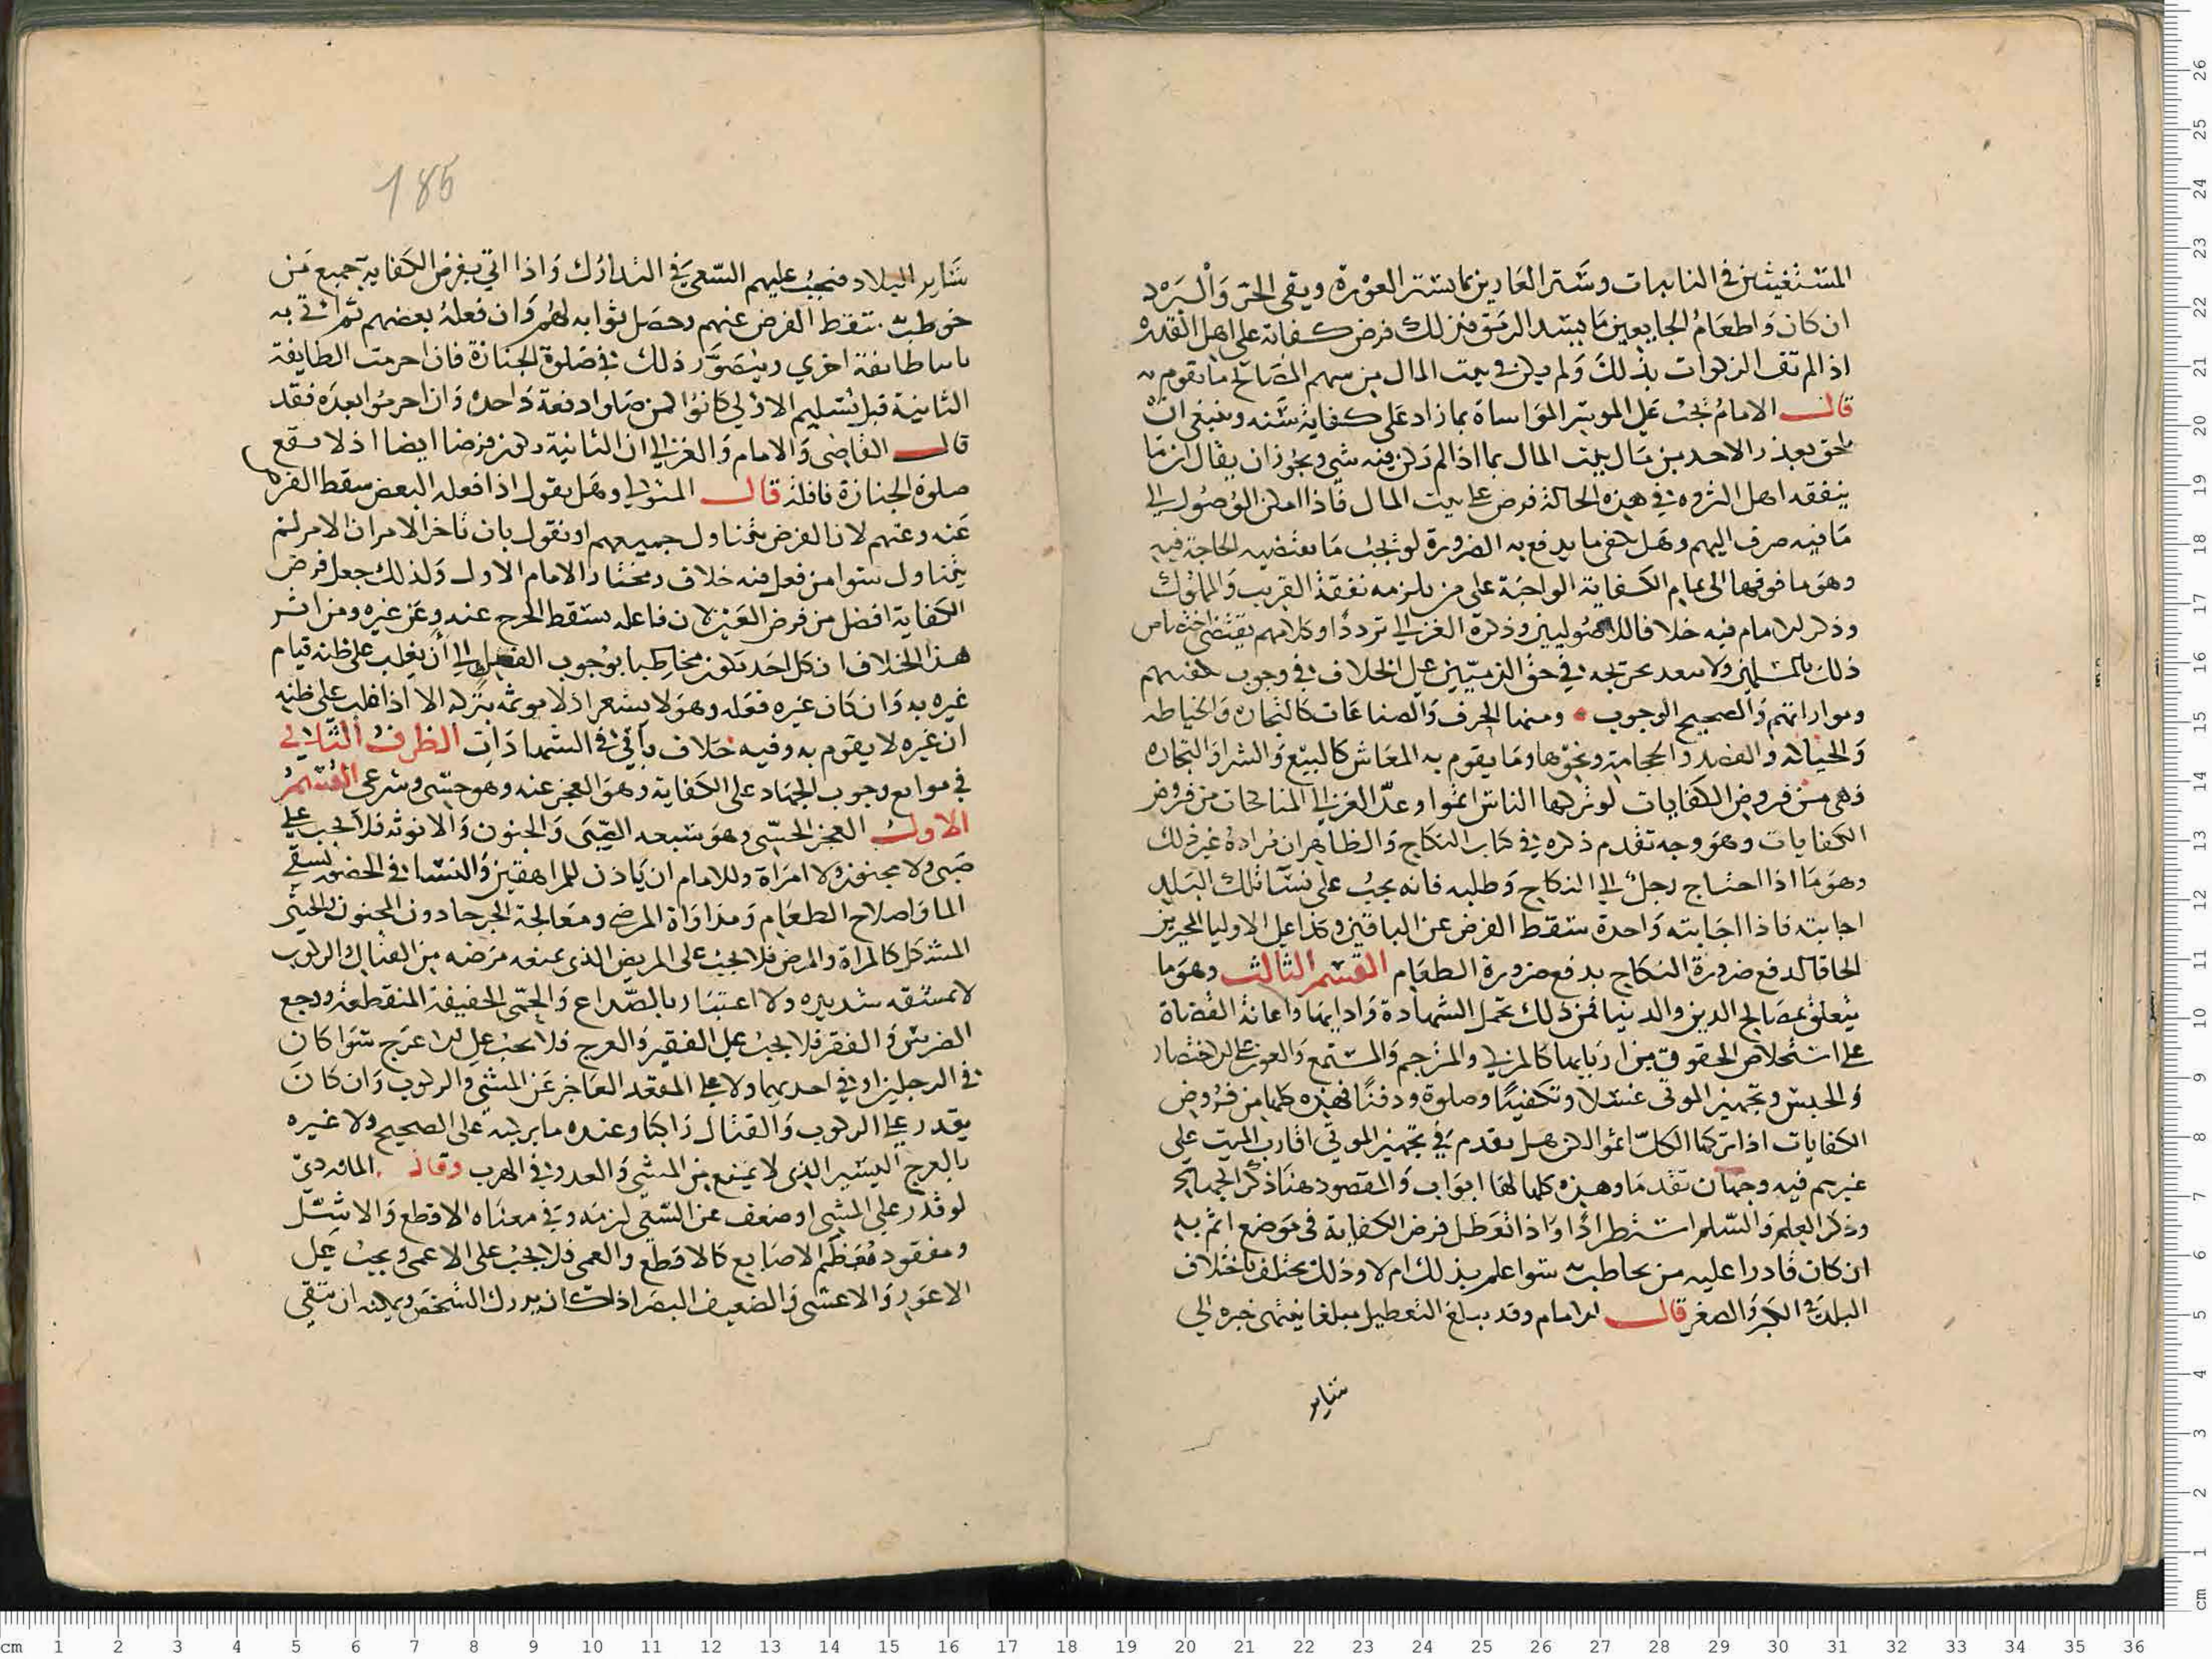 المستغيثين في النايبات وستر العارين بما يستر العورة ويقي الحر والبرد
ان كان واطعام الجايعين ما يسد الرمق فذلك فرض كفاية على اهل القدرة
اذا لم تف الزكوات بذلك ولم يكن في بيت المال من سهم المصالح ما يقوم به
قال الامام يجب على الموسر المواساة بما زاد على كفاية سنه وينبغي ان
يلحق بعذر الاخذ من مال بيت المال بما اذا لم يكن فيه شي ويجوز ان يقال ان ما
ينفقه اهل الثروه في هذه الحالة فرض على بيت المال فاذا امكن الوصول الي
ما فيه صرف اليهم وهل يكفي ما يدفع به الضرورة او يجب ما يقتضيه الحاجة فيه
وهو ما فوقها الى تمام الكفاية الواجبة على من يلزمه نفقة القريب والمملوك
وذكر الامام فيه خلافا للاصوليين وذكره الغزالي ترددا وكلامهم يقتضي اختصاص
ذلك بالمسلمين ولا يبعد تخريجه في حق الذميين على الخلاف في وجوب تكفينهم
ومواراتهم والصحيح الوجوب ومنها الحرف والصناعات كالتجارة والخياطه
والحياكه والفصد والحجامة ونحوها وما يقوم به المعاش كالبيع والشرا والتجاره
فهي من فروض الكفايات لو تركها الناس اثموا وعد الغزالي المناكحات من فروض
الكفايات وهو وجه تقدم ذكره في كتاب النكاح والظاهر ان مراده غير ذلك
وهو ما اذا احتاج رجل الي النكاح وطلبه فانه يجب على نسا تلك البلد
اجابته فاذا اجابته واحدة سقط الفرض عن الباقين وكذا على الاوليا المجبرين
الحاقا لدفع ضرورة النكاح بدفع ضرورة الطعام القسم الثالث وهو ما
يتعلق بمصالح الدين والدنيا فمن ذلك تحمل الشهادة واداؤها واعانة القضاة
على استخلاص الحقوق من اربابها كالمزكي والمترجم والمستمع والعون على الاختصار
والحبس وتجهيز الموتى غسلا وتكفينا وصلوة ودفنا فهذه كلها من فروض
الكفايات اذا تركها الكل اثموا لكن هل يقدم في تجهيز الموتى اقارب الميت على
غيرهم فيه وجهان تقدما وهذه كلها لها ابواب والمقصود هنا ذكر الجهاد
وذكر العلم والسلم استطرادا واذا تعطل فرض الكفاية في موضع اثم به
ان كان قادرا عليه من يخاطب به سوا علم بذلك ام لا وذلك يختلف باختلاف
البلد في الكبر والصغر قال الامام وقد يبلغ التعطيل مبلغا ينتهي خبره الي
ساير
185
ساير البلاد فيجب عليهم السعي في التدارك واذا اتي بفرض الكفاية جميع من
خوطب به سقط الفرض عنهم وحصل ثوابه لهم وان فعله بعضهم ثم اتى به
طايفة اخري ويتصور ذلك في صلوة الجنازة فان احرمت الطايفة
الثانية قبل تسليم الاولي كانوا كمن صلوا دفعة واحده وان احرموا بعده فقد
قال القاضي والامام والغزالي ان الثانية يكون فرضا ايضا اذ لا يقع
صلوة الجنازة نافلة قال المتولي وهل يقول اذا فعله البعض سقط الفرض
عنه وعنهم لان الفرض يتناول جميعهم او نقول بان تاخر الامر ان الامر لم
يتناول سوا من فعل فيه خلاف ومختار الامام الاول ولذلك جعل فرض
الكفاية افضل من فرض العين لان فاعله يسقط الحرج عنه وعن غيره ومن اثر
هذا الخلاف ان كل احد يكون مخاطبا بوجوب الفعل الي ان يغلب على ظنه قيام
غيره به وان كان غيره فعله وهو لا يشعر اذ لا موثمه بتركه الا اذا غلب على ظنه
ان غيره لا يقوم به وفيه خلاف ياتي في الشهادات الطرف الثاني
في موانع وجوب الجهاد على الكفاية وهو العجز عنه وهو حسي وشرعي القسم
الاول العجز الحسي وهو سبعه الصبى والجنون والانوثه فلا يجب على
صبي ولا مجنون ولا امراة وللامام ان ياذن للمراهقين والنسا في الحضور لسقي
الما واصلاح الطعام ومداواة المرضى ومعالجة الجرحا دون المجنون والخنثى
المشكل كالمراة والمرض فلا يجب على المريض الذي يمنعه مرضه من القتال والركوب
لا بمشقه شديده ولا اعتبار بالصداع والحمى الخفيفة المنقطعة ووجع
الضرس والفقر فلا يجب على الفقير والعرج فلا يجب على الاعرج سوا كان
في الرجلين او في احديهما ولا على المقعد العاجز عن المشي والركوب وان كان
يقدر على الركوب والقتال راكبا وعنده ما يركبه على الصحيح ولا غيره
بالعرج اليسير الذي لا يمنع من المشي والعدو في الهرب وقال الماوردي
لو قدر على المشي او ضعف عن السعي لزمه وفي معناه الاقطع والاشل
ومفقود معظم الاصابع كالاقطع والعمى فلا يجب على الاعمى ويجب على
الاعور والاعشى والضعيف البصر اذا كان يدرك الشخص ويمكنه ان يتقي